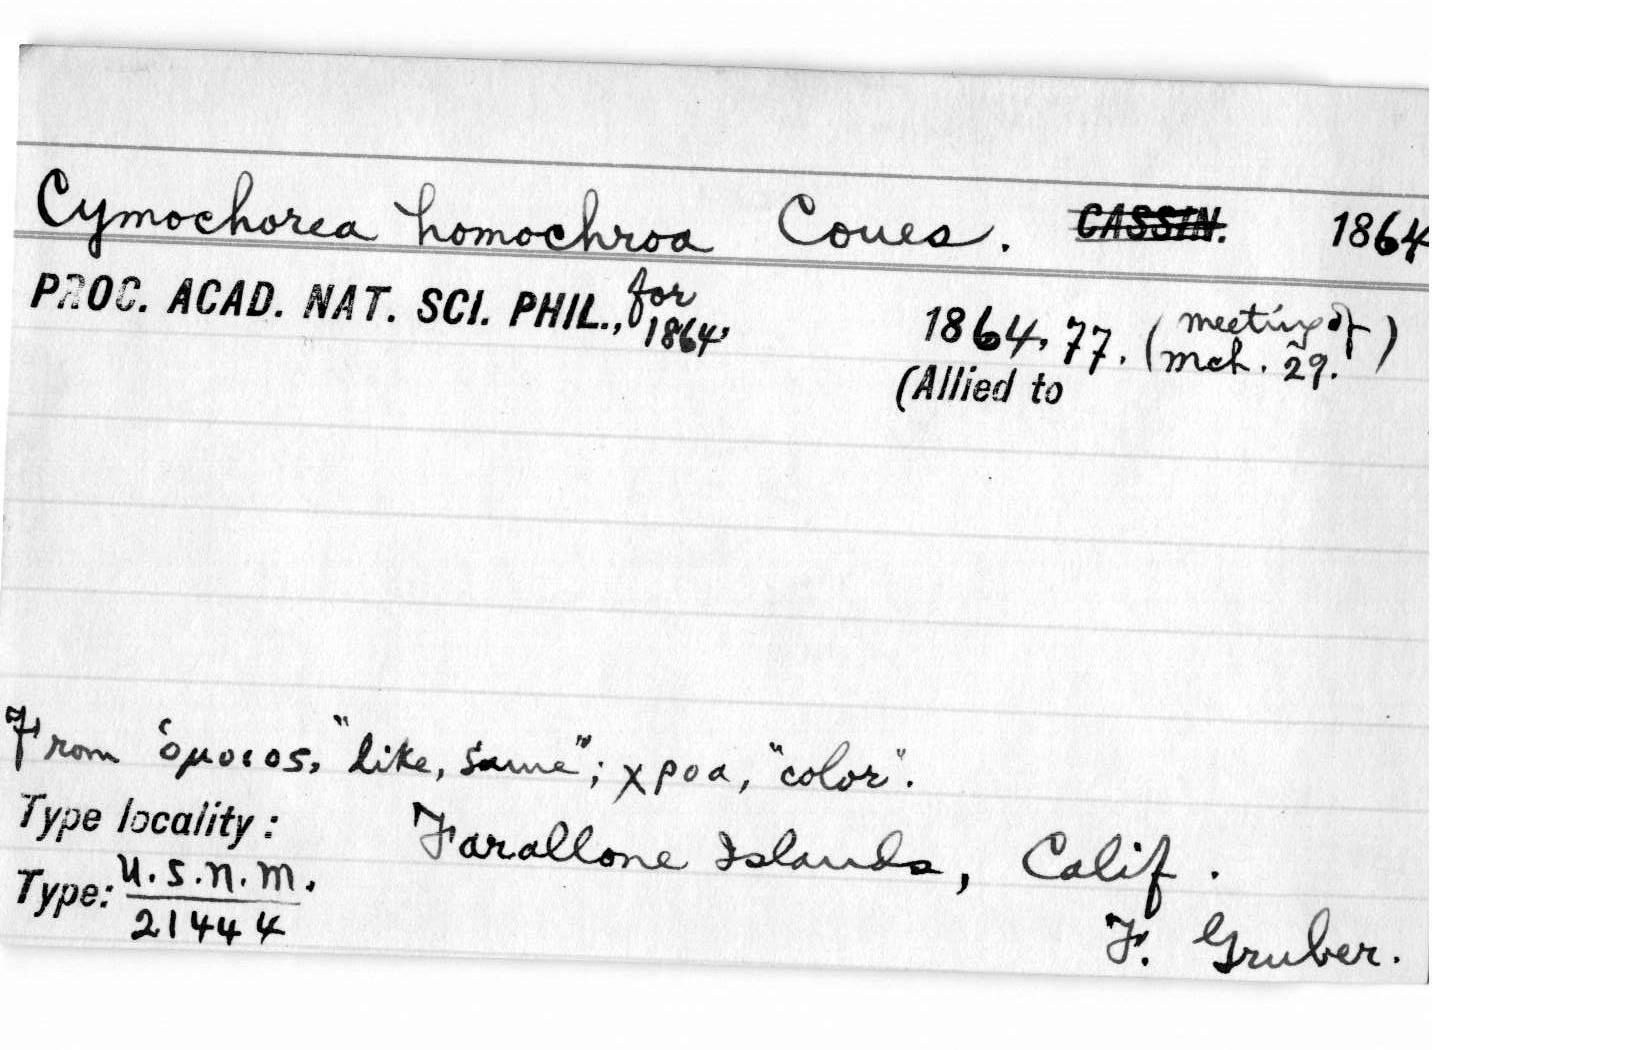 Cymochorea homochroa Coues. CASSIN. 1864
PROC. ACAD. NAT. SCI. PHIL., for 1864, 1864, 77. (meeting of Mch. 29.)
(Allied to
From ʽομοιος, "like, same"; χροα, "color".
Type locality: Farallone Islands, Calif.
Type: U.S.N.M. 21444 F. Gruber.